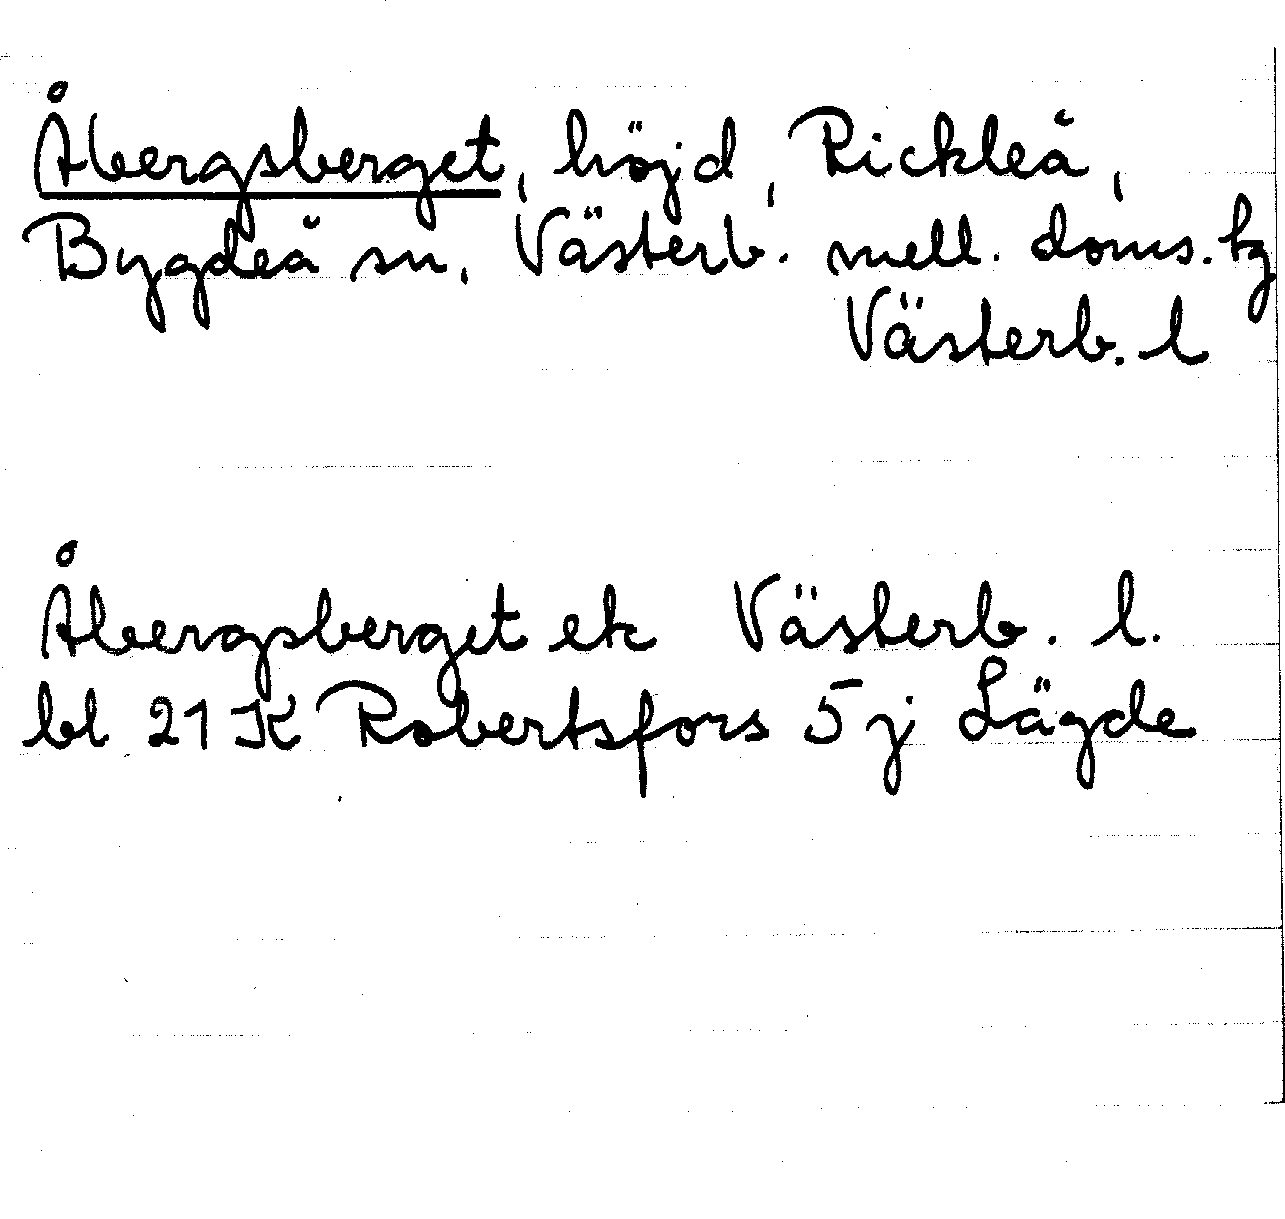 Åbergsberget, höjd, Rickleå,
Bygdeå sn, Västerb. mell. doms. tg
Västerb. l
Åbergsberget ek Västerb. l.
bl 21 K Robertsfors 5 j Lägde